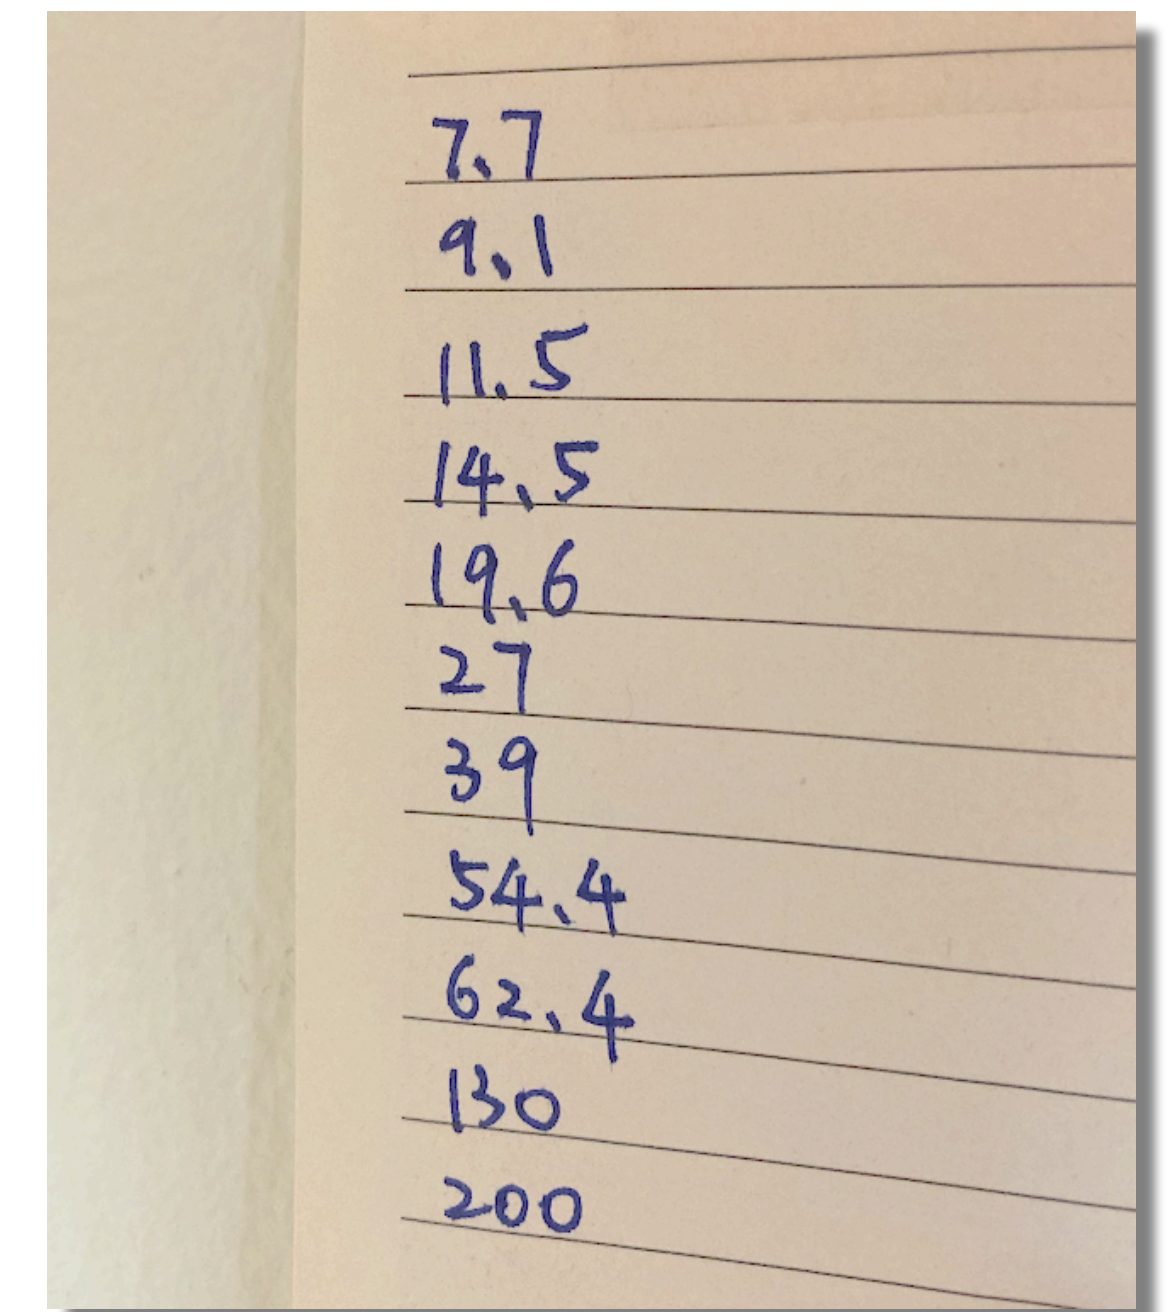 7.7
9.1
11.5
14.5
19.6
27
39
54.4
62.4
130
200